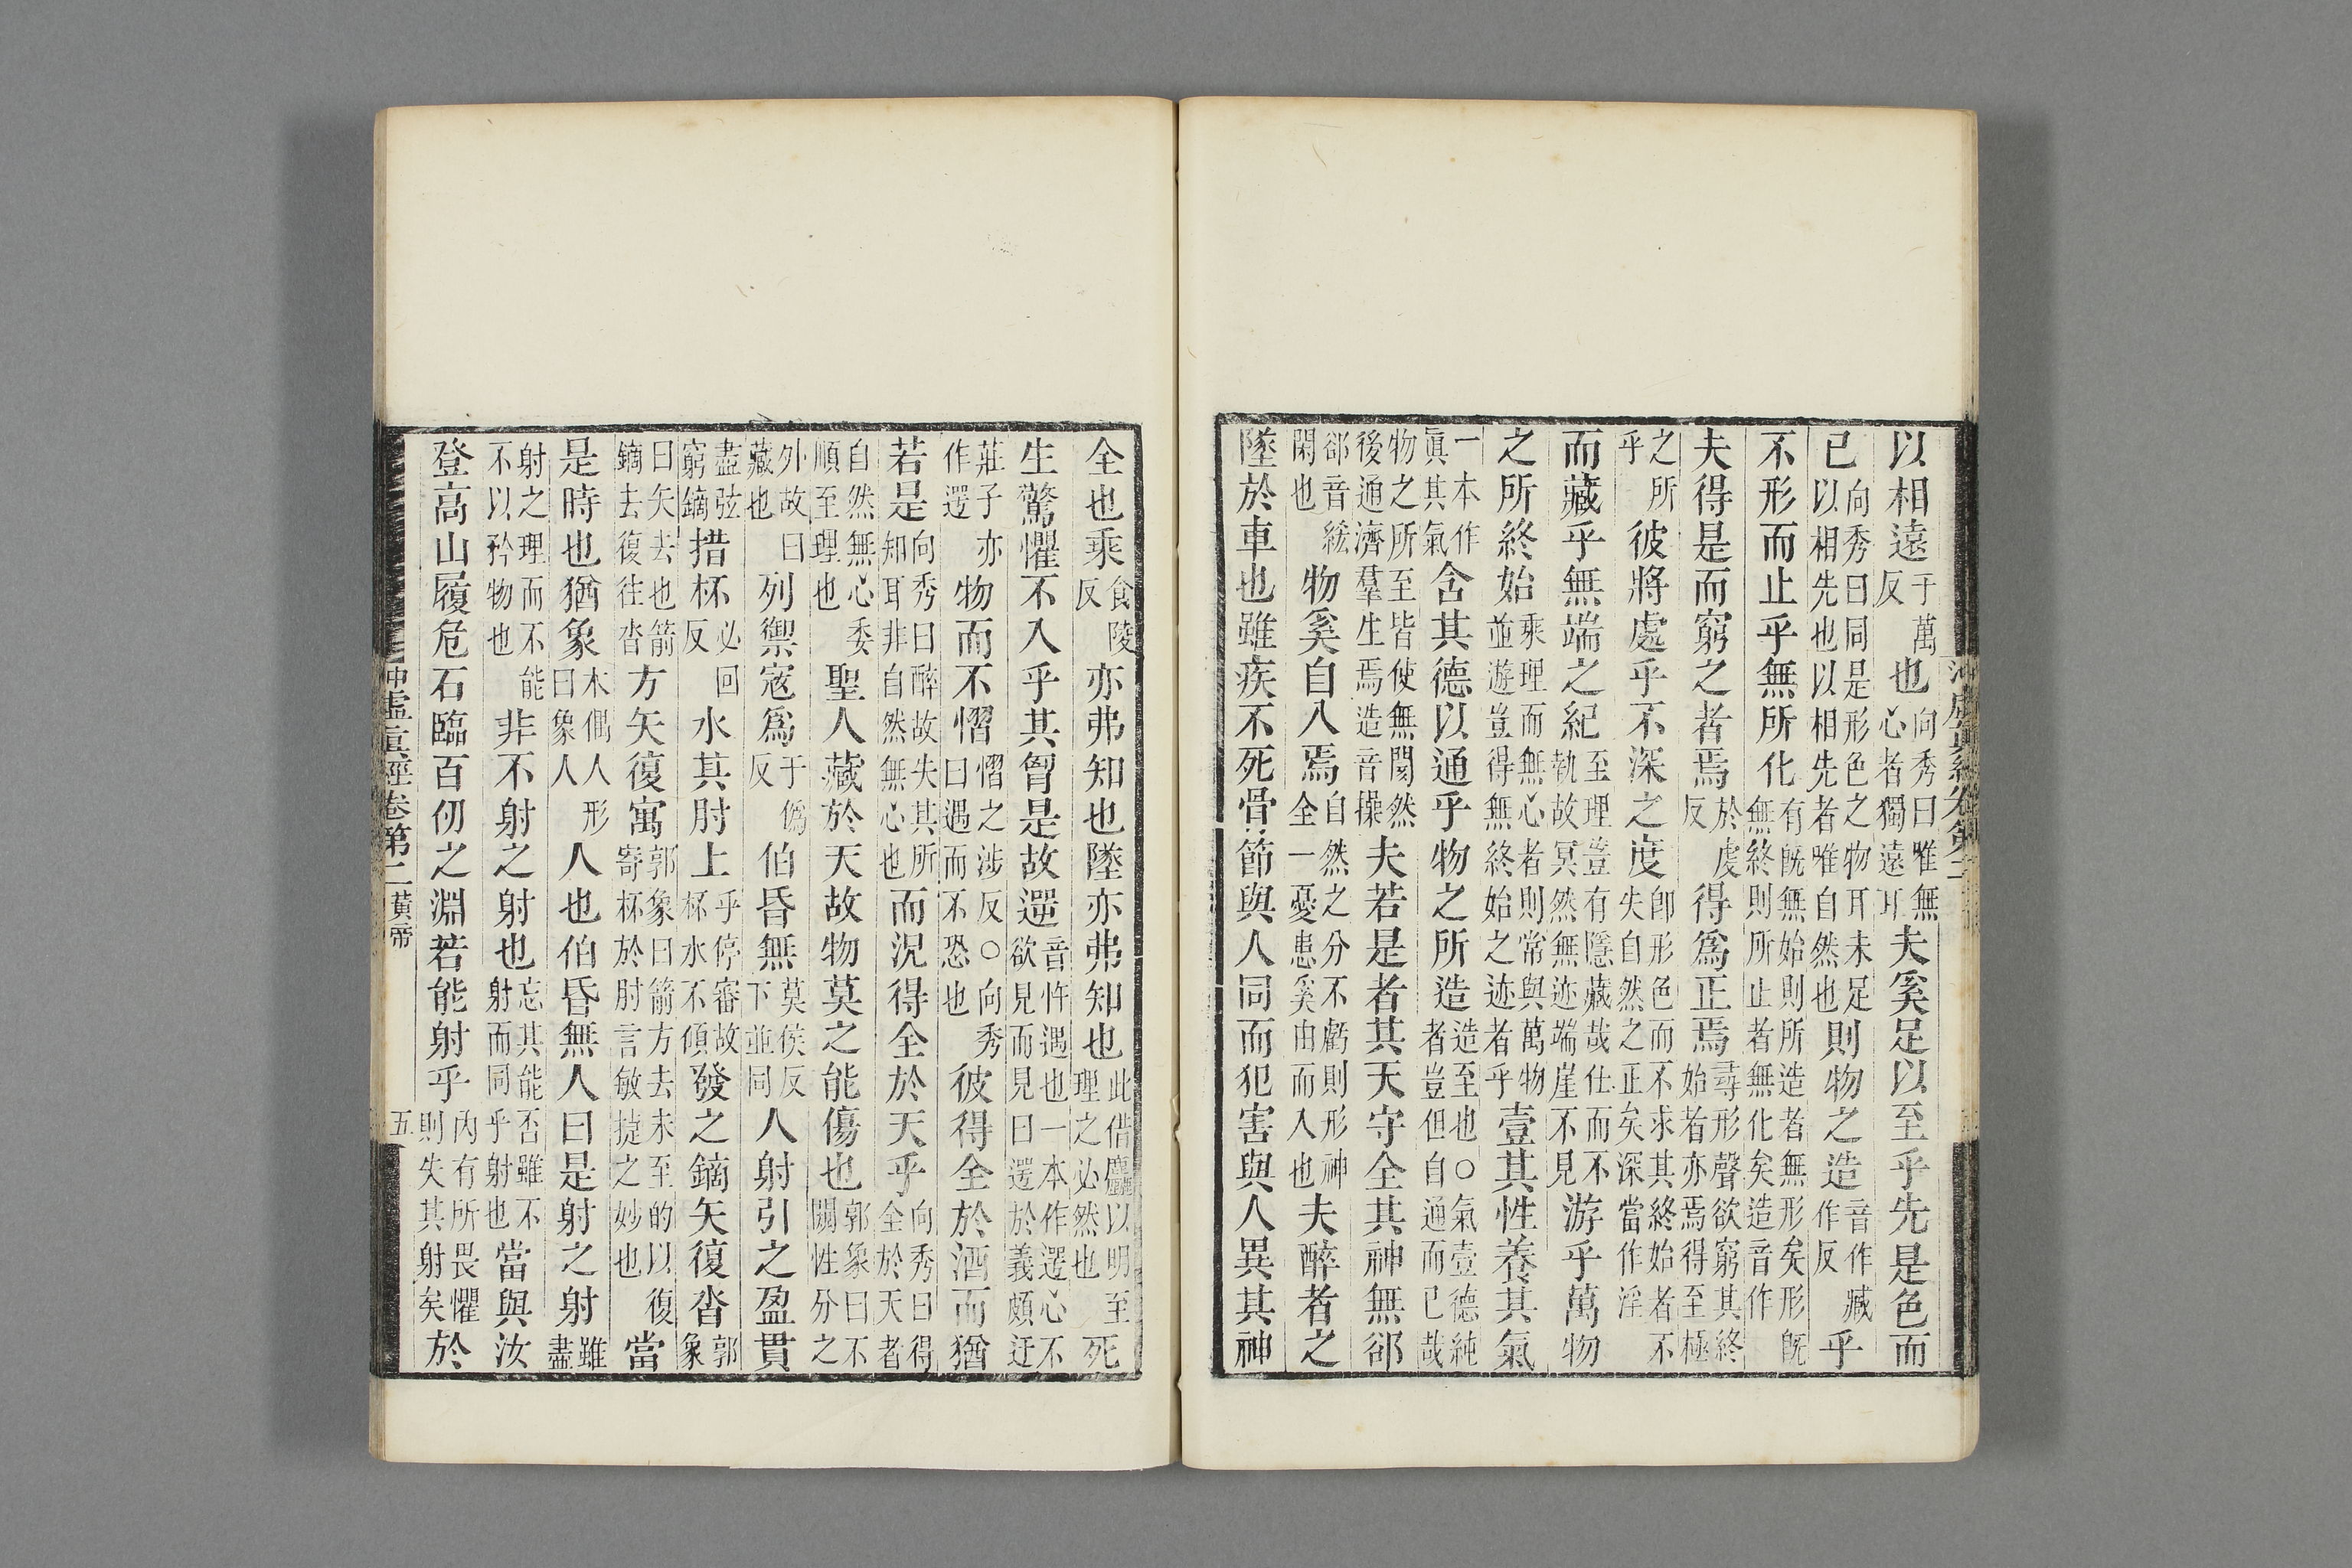 以相遠于萬反也向秀曰唯無心者獨遠耳夫奚足以至乎先是色而
已向秀曰同是形色之物耳未足以相先也以相先者唯自然也則物之造音作臧作反乎
不形而止乎無所化有旣無始則所造者無形矣形旣無終則所止者無化矣造音作
夫得是而窮之者焉於虔反得爲正焉尋形聲欲窮其終始者亦焉得至極
之所乎彼將處乎不深之度卽形色而不求其終始者不失自然之正矣深當作淫
而藏乎無端之紀至理豈有隱藏哉仕而不執故冥然無迹端崖不見游乎萬物
之所終始乘理而無心者則常與萬物並遊豈得無終始之迹者乎壹其性養其氣
一本作眞其氣含其德以通乎物之所造造至也○氣壹德純者豈但自通而已哉
物之所至皆使無閡然後通濟羣生焉造音操夫若是者其天守全其神無郤
郤音綌閑也物奚自入焉自然之分不虧則形神全一憂患奚由而入也夫醉者之
墜於車也雖疾不死骨節與人同而犯害與人異其神
沖虛眞經卷第二
全也乘食陵反亦弗知也墜亦弗知也此借麤以明至理之必然也死
生驚懼不入乎其胷是故遻音忤遇也一本作遻心不欲見而見曰遻於義頗迂
莊子亦作遻物而不慴慴之涉反○向秀曰遇而不恐也彼得全於酒而猶
若是向秀曰醉故失其所知耳非自然無心也而況得全於天乎向秀曰得全於天者
自然無心委順至理也聖人藏於天故物莫之能傷也郭象曰不闚性分之
外故曰藏也列禦寇爲于僞反伯昏無莫侯反下並同人射引之盈貫
盡弦窮鏑措杯必回反水其肘上乎停審故杯水不傾發之鏑矢復沓郭象
曰矢去也箭鏑去復往沓方矢復寓郭象曰箭方去未至的以復寄杯於肘言敏捷之妙也當
是時也猶象木偶人形曰象人人也伯昏無人曰是射之射雖盡
射之理而不能不以矜物也非不射之射也忘其能否雖不射而同乎射也當與汝
登高山履危石臨百仞之淵若能射乎內有所畏懼則失其射矣於
沖虛眞經卷第二 黃帝 五